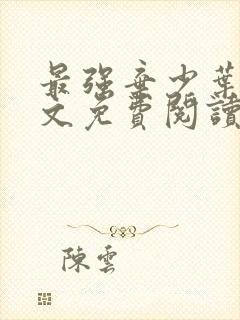 最強棄少葉
文免費閱讀
陳雲